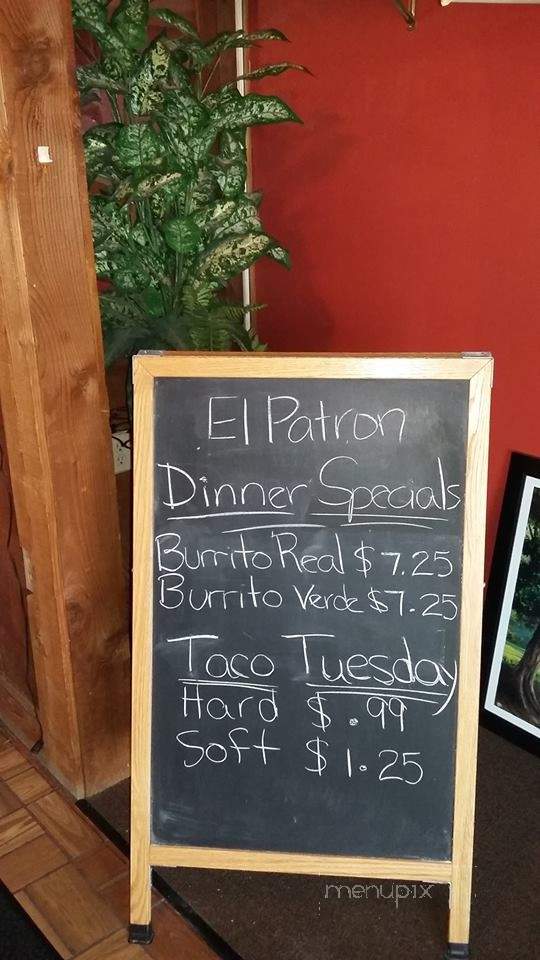 El Patron
Dinner Specials
Burrito Real $7.25
Burrito Verde $7.25
Taco Tuesday
Hard $.99
Soft $1.25
menupix